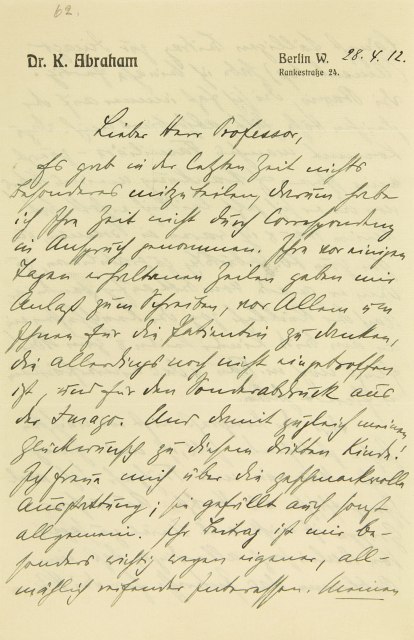 62.
Dr. K. Abraham
Berlin W. 28.4.12.
Rankestraße 24.
Lieber Herr Professor,
Es gab in der letzten Zeit nichts
Besonderes mitzuteilen, darum habe
ich Ihre Zeit nicht durch Correspondenz
in Anspruch genommen. Ihre vor einigen
Tagen erhaltenen Zeilen geben mir
Anlaß zum Schreiben, vor Allem um
Ihnen für die Patientin zu danken,
die allerdings noch nicht eingetroffen
ist, und für den Sonderabdruck aus
der Imago. Und damit zugleich meinen
Glückwunsch zu diesem dritten Kinde!
Ich freue mich über die geschmackvolle
Ausstattung; sie gefällt auch sonst
allgemein. Ihr Beitrag ist mir be-
sonders wichtig wegen eigener, all-
mählich reifender Interessen. Meinen